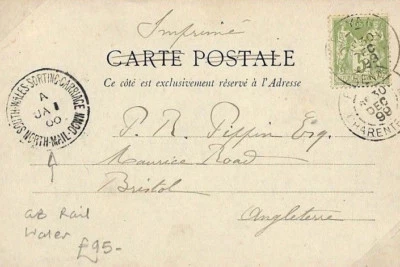 Imprimé
CARTE POSTALE
Ce côté est exclusivement réservé à l'Adresse
SOUTH-WALES-SORTING-CARRIAGE
A
JA 1
00
NORTH-MAIL-DOWN
30
DEC
99
CHARENTE
P. R. Pippin Esq.
Maurice Road
Bristol
Angleterre
GB Rail
Water
£95-